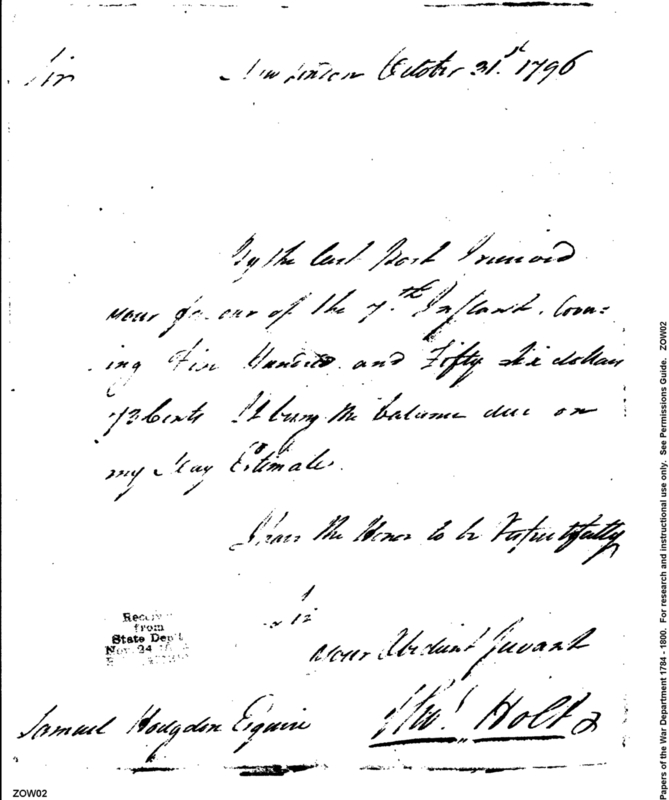 Sir
New London October 31st. 1796
By the last Post I receivd
your favour of the 7th. Instant. Cover=
ing Five Hundred and Fifty Six dollars
73 Cents It being the balance due on
my Estimate.
I have the Honor to be Respectfully
Sir
your Obedient Servant
Thos. Holt
Samuel Hodgdon Esquire
Received
from
State Dep't
Nov. 24
ZOW02
Papers of the War Department 1784 - 1800. For research and instructional use only. See Permissions Guide. ZOW02